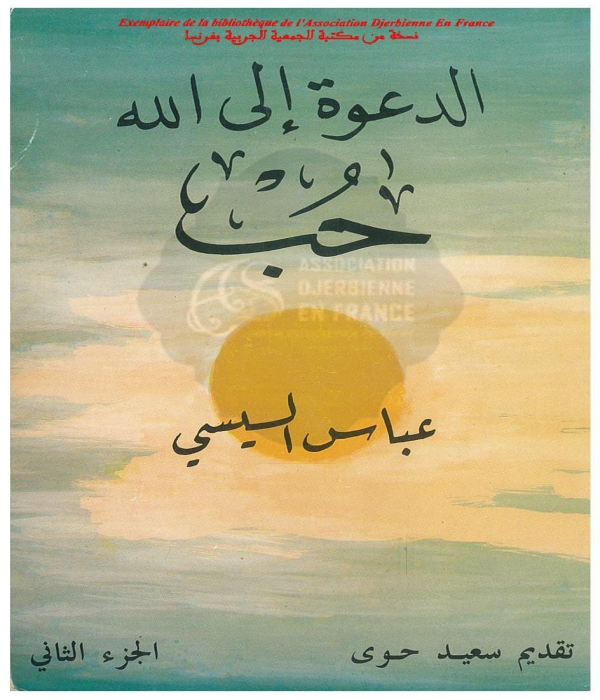 Exemplaire de la bibliothèque de l'Association Djerbienne En France
نسخة من مكتبة الجمعية الجربية بفرنسا
الدعوة إلى الله
حُب
ASSOCIATION
DJERBIENNE
EN FRANCE
عباس السيسي
تقديم سعيد حوى
الجزء الثاني